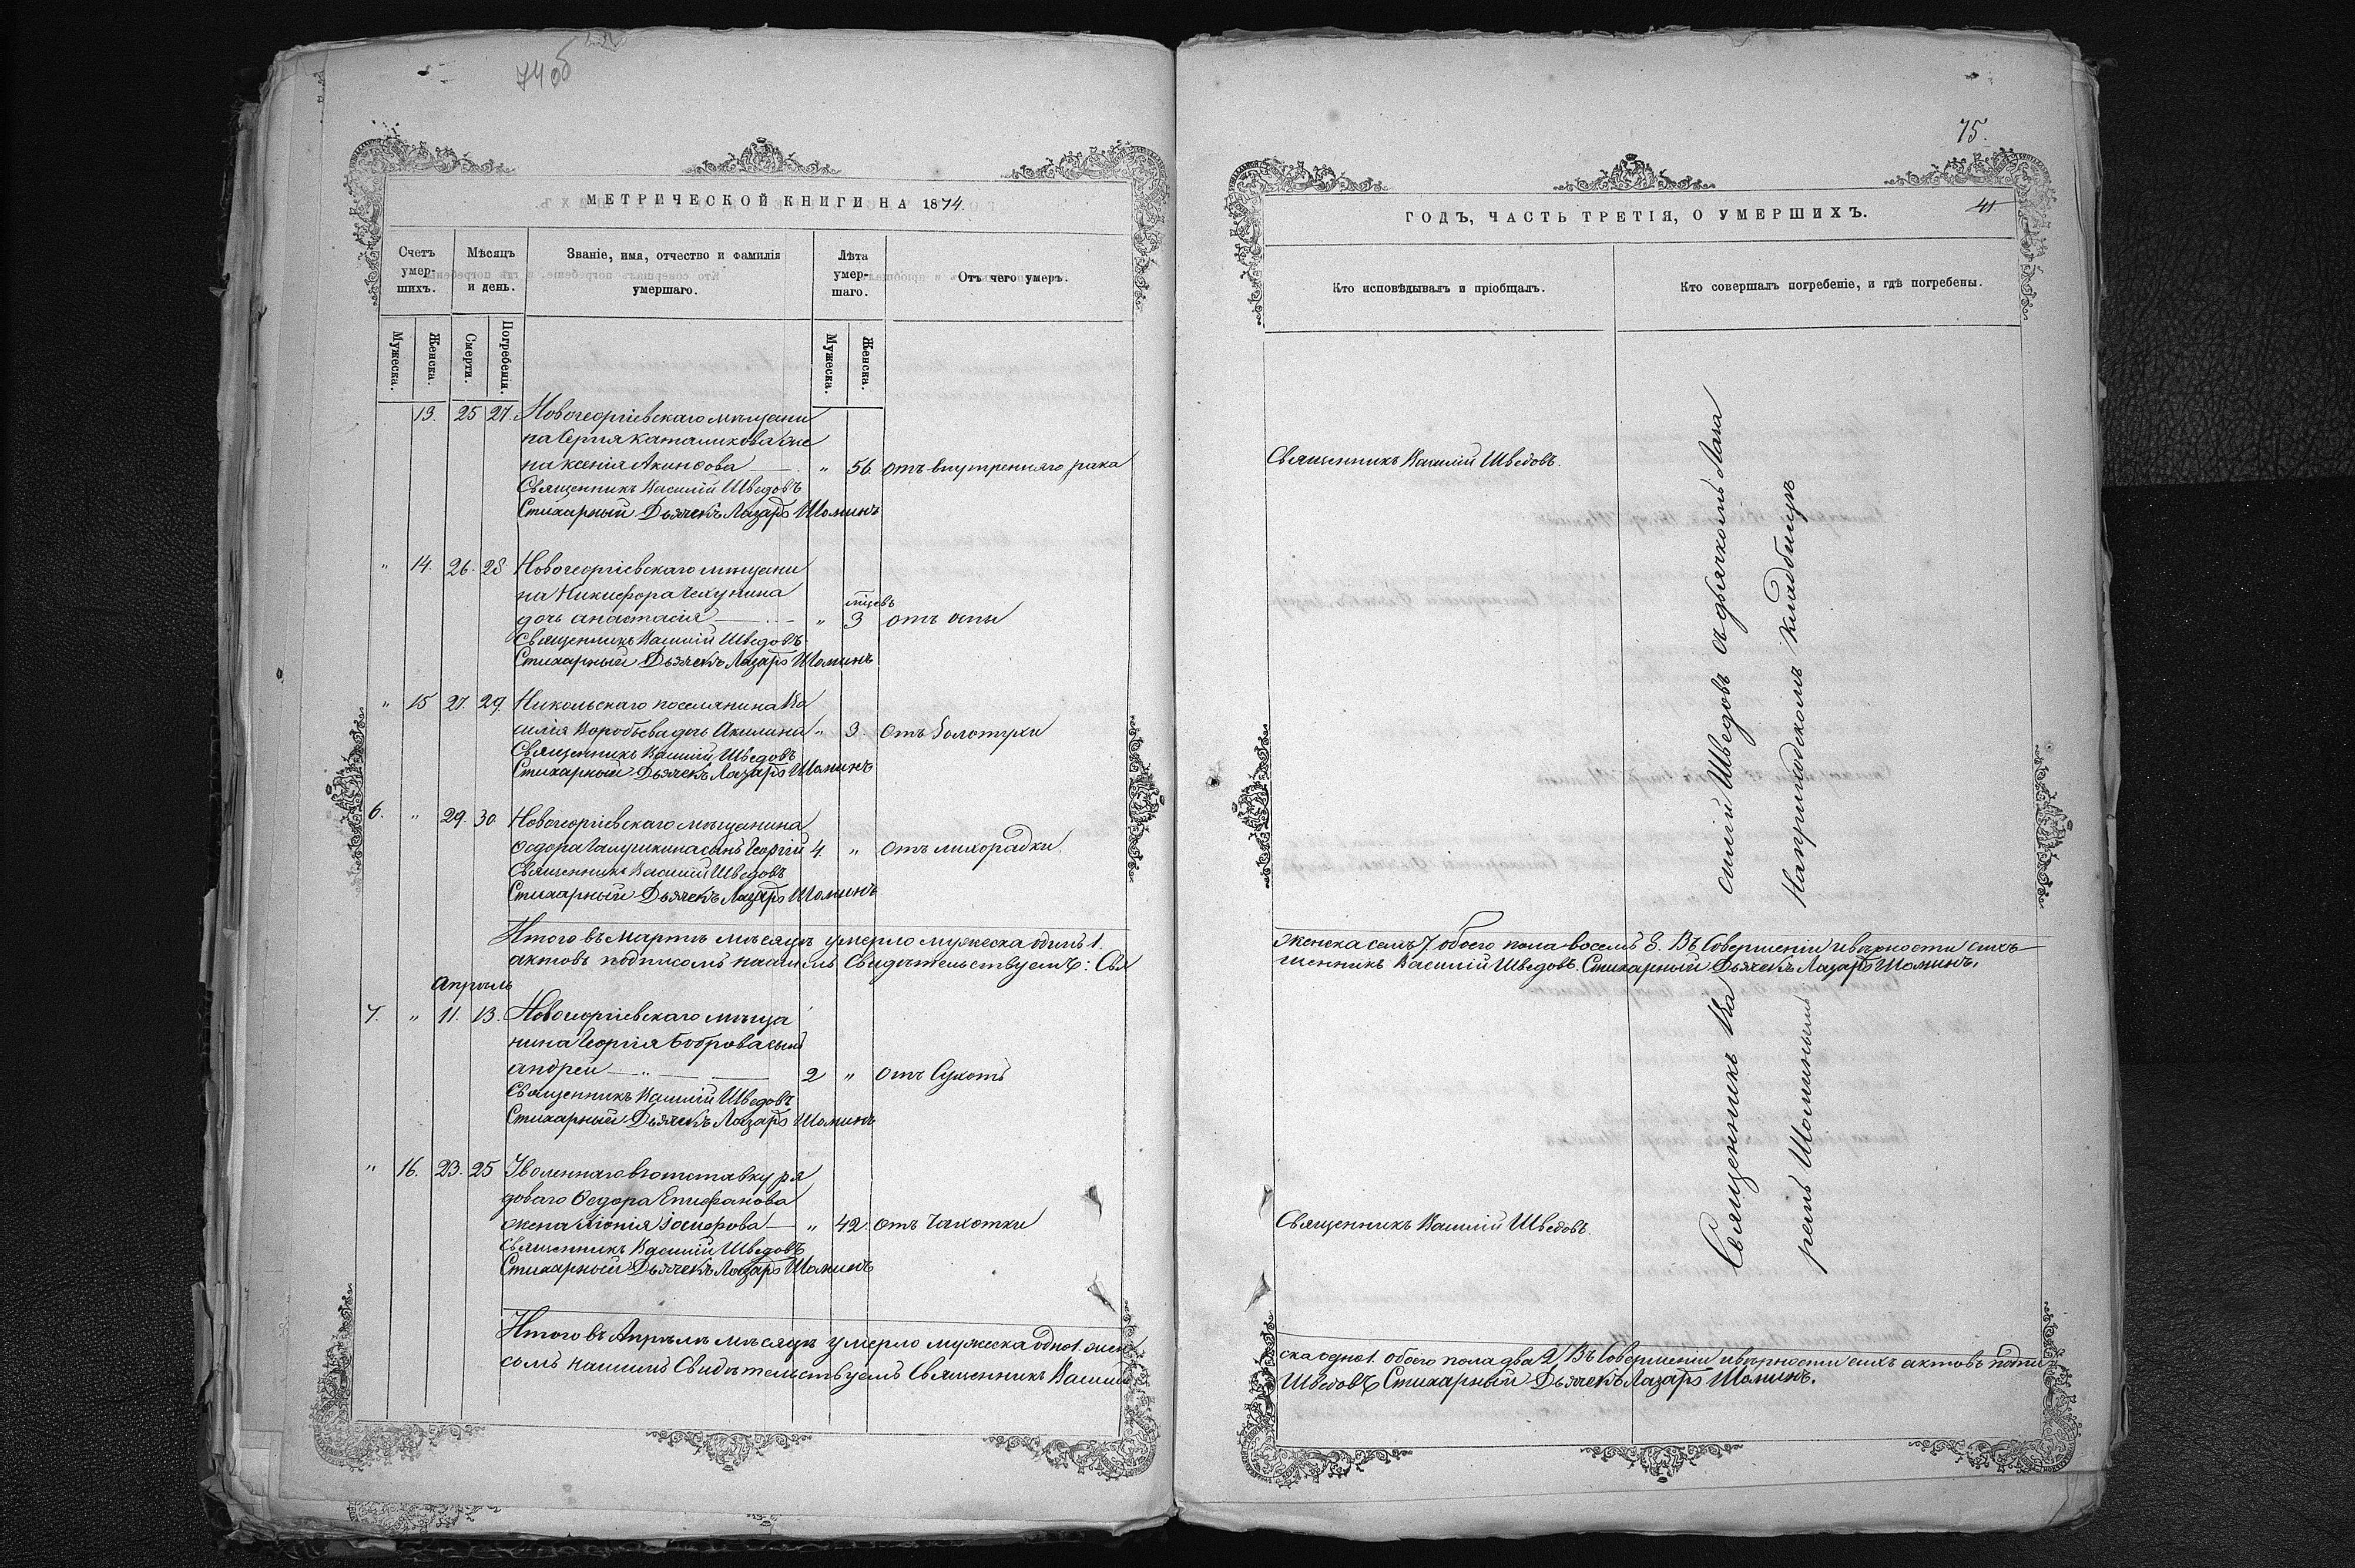 74 об
МЕТРИЧЕСКОЙ КНИГИ НА 1874
Счетъ умер-шихъ.
Мѣсяцъ и день.
Званіе, имя, отчество и фамилія умершаго.
Лѣта умер-шаго.
Отъ чего умеръ.
Мужеска.
Женска.
Смерти.
Погребенія.
Мужеска.
Женска.
13. 25 27. Новогеоргіевскаго мѣщани
на Сергія Каталикова же
на Ксенія Акинѳова — „ 56. отъ внутренняго рака
Священникъ Василій Шведовъ
Стихарный Дьячекъ Лазарь Шоминъ
„ 14. 26. 28 Новогеоргіевскаго мѣщани
на Никифора Чекунина
мцевъ
дочь анастасія — „ 3 отъ оспы
Священникъ Василій Шведовъ
Стихарный Дьячекъ Лазарь Шоминъ
„ 15 27. 29. Никольскаго поселянина Ва
силія Воробьева дочь Акилина „ 3. отъ Золотухи
Священникъ Василій Шведовъ
Стихарный Дьячекъ Лазарь Шоминъ
6. „ 29. 30. Новогеоргіевскаго мѣщанина
Ѳедора сынъ Георгій 4. „ отъ лихорадки.
Священникъ Василій Шведовъ
Стихарный Дьячекъ Лазарь Шоминъ
Итого въ мартѣ мѣсяцѣ умерло мужеска одинъ 1.
актовъ подписомъ нашимъ Свидѣтельствуемъ: Свя
Апрѣль
7. „ 11. 13. Новогеоргіевскаго мѣща
нина Георгія Боброва сынъ
андрей — „ — 2 „ отъ Сухотъ
Священникъ Василій Шведовъ
Стихарный Дьячекъ Лазарь Шоминъ
„ 16. 23. 25 Уволеннаго въ отставку ря
доваго Ѳедора Епифанова
жена Хіонія Іосифова — „ 42. отъ Чахотки
Священникъ Василій Шведовъ
Стихарный Дьячекъ Лазарь Шоминъ
Итого въ Апрѣлѣ мѣсяцѣ умерло мужеска одно 1. жен
сомъ нашимъ Свидѣтельствуемъ Священникъ Василій
75.
41
ГОДЪ, ЧАСТЬ ТРЕТІЯ, О УМЕРШИХЪ.
Кто исповѣдывалъ и пріобщалъ.
Кто совершалъ погребеніе, и гдѣ погребены.
Священникъ Василій Шведовъ.
женска семь 7 обоего пола восемь 8. Въ Совершеніи и вѣрности сихъ
щенникъ Василій Шведовъ. Стихарный Дьячекъ Лазарь Шоминъ.
Священникъ Василій Шведовъ.
ска одно 1. обоего пола два 2, Въ Совершеніи и вѣрности сихъ актовъ подпи
Шведовъ Стихарный Дьячекъ Лазарь Шоминъ.
Священникъ Ва силій Шведовъ съ дьячкомъ Лаза
ремъ Шоминымъ На приходскомъ кладбищѣ